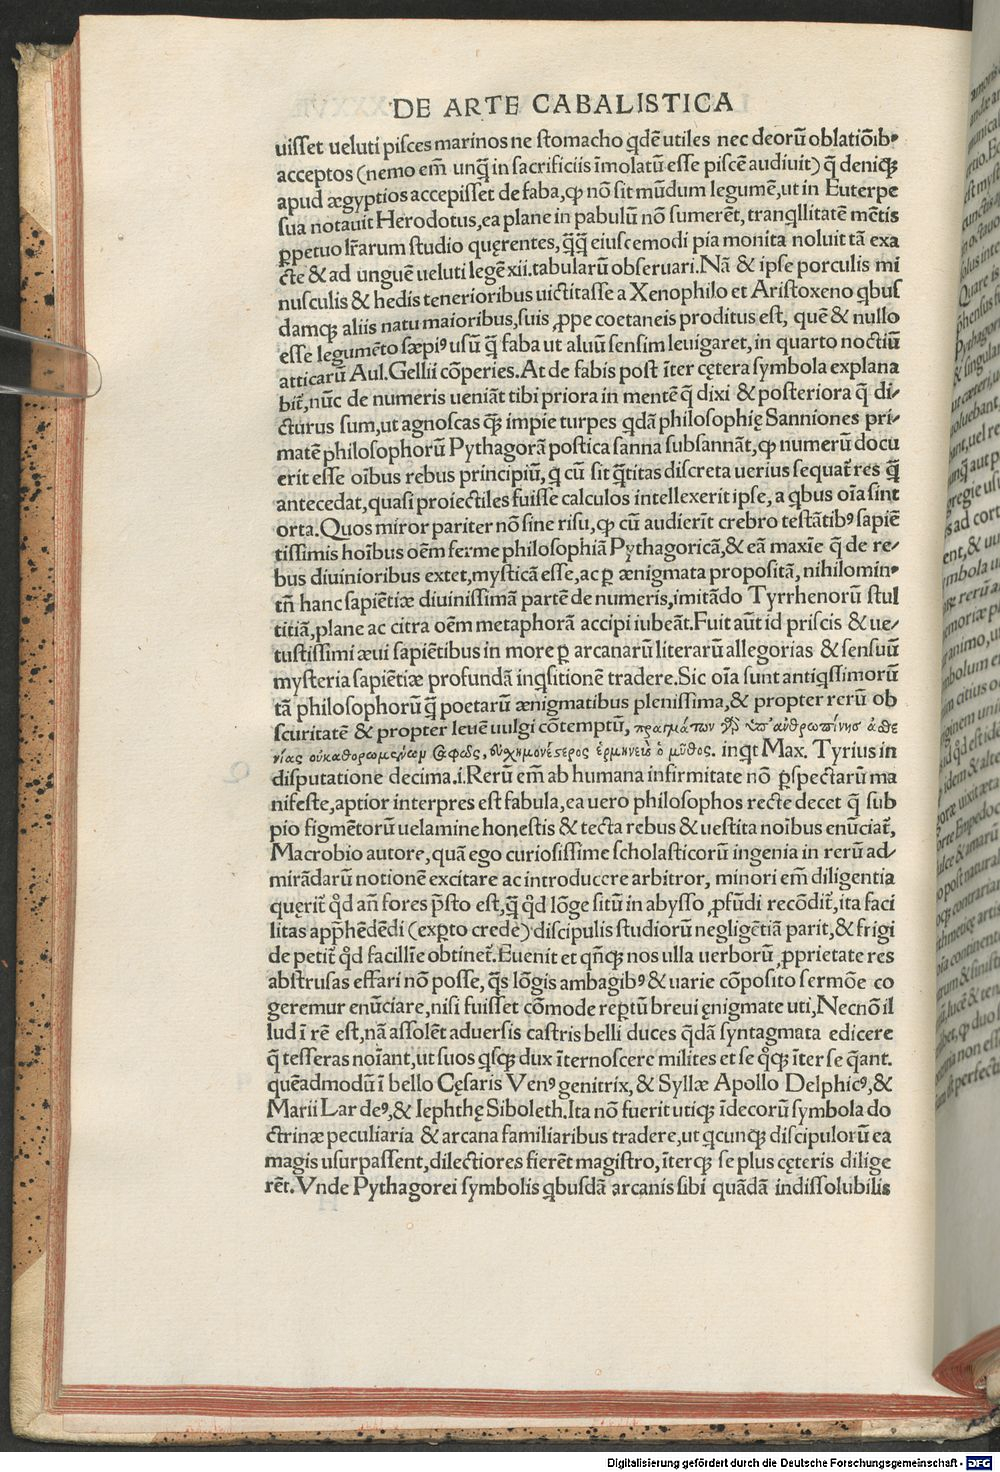 DE ARTE CABALISTICA
uiſſet ueluti piſces marinos ne ſtomacho qdē utiles nec deorū oblatiōib⁹
acceptos (nemo em̄ unq̄ in ſacrificiis īmolatū eſſe piſcē audiuit) q̄ deniqꝫ
apud ægyptios accepiſſet de faba, ꝙ nō ſit mūdum legumē, ut in Euterpe
ſua notauit Herodotus, ea plane in pabulū nō ſumerēt, tranqllitatē mētis
ꝑpetuo lr̄arum ſtudio quęrentes, q̄q̄ eiuſcemodi pia monita noluit tā exa
cte & ad unguē ueluti legē xii. tabularū obſeruari. Nā & ipſe porculis mi
nuſculis & hedis tenerioribus uictitaſſe a Xenophilo et Ariſtoxeno qbuſ
damqꝫ aliis natu maioribus, ſuis ꝓpe coetaneis proditus eſt, quē & nullo
eſſe legumēto ſæpi⁹ uſū q̄ faba ut aluū ſenſim leuigaret, in quarto noctiū
atticarū Aul. Gellii cōperies. At de fabis poſt īter cętera ſymbola explana
bit̄, nūc de numeris ueniāt tibi priora in mentē q̄ dixi & poſteriora q̄ di⸗
cturus ſum, ut agnoſcas qꝫ̄ impie turpes qdā philoſophię Sanniones pri⸗
matē philoſophorū Pythagorā poſtica ſanna ſubſannāt, ꝙ numerū docu
erit eſſe oībus rebus principiū, q cū ſit q̄titas diſcreta uerius ſequat̄ res q̄
antecedat, quaſi proiectiles fuiſſe calculos intellexerit ipſe, a qbus oīa ſint
orta. Quos miror pariter nō ſine riſu, ꝙ cū audierīt crebro teſtātib⁹ ſapiē
tiſſimis hoībus oēm ferme philoſophiā Pythagoricā, & eā maxīe q̄ de re⸗
bus diuinioribus extet, myſticā eſſe, ac ꝑ ænigmata propoſitā, nihilomin⁹
tn̄ hanc ſapiētiæ diuiniſſimā partē de numeris, imitādo Tyrrhenorū ſtul
titiā, plane ac citra oēm metaphorā accipi iubeāt. Fuit aūt id priſcis & ue⸗
tuſtiſſimi æui ſapiētibus in more ꝑ arcanarū literarū allegorias & ſenſuū
myſteria ſapiētiæ profundā inqſitionē tradere. Sic oīa ſunt antiqſſimorū
tā philoſophorū q̄ poetarū ænigmatibus pleniſſima, & propter rerū ob
ſcuritatē & propter leuē uulgi cōtemptū, πραγμάτων γὰρ ὑπ' ἀνθρωπίνης ἀσθε
νείας οὐ καθορωμένων σαφῶς, εὐσχημονέστερος ἑρμηνεὺς ὁ μῦθος. inqt Max. Tyrius in
diſputatione decima. i. Rerū em̄ ab humana infirmitate nō ꝑſpectarū ma
nifeſte, aptior interpres eſt fabula, ea uero philoſophos recte decet q̄ ſub
pio figmētorū uelamine honeſtis & tecta rebus & ueſtita noībus enūciat̄,
Macrobio autore, quā ego curioſiſſime ſcholaſticorū ingenia in rerū ad⸗
mirādarū notionē excitare ac introducere arbitror, minori em̄ diligentia
quęrit̄ qd añ fores p̄ſto eſt, q̄ qd lōge ſitū in abyſſo ꝓfūdi recōdit̄, ita faci
litas app̄hēdēdi (exꝑto crede) diſcipulis ſtudiorū negligētiā parit, & frigi
de petit̄ qd facillīe obtinet̄. Euenit et qñqꝫ nos ulla uerborū ꝓprietate res
abſtruſas effari nō poſſe, q̄s lōgis ambagib⁹ & uarie cōpoſito ſermōe co
geremur enūciare, niſi fuiſſet cōmode reꝑtū breui ęnigmate uti, Necnō il
lud ī rē eſt, nā aſſolēt aduerſis caſtris belli duces q̄dā ſyntagmata edicere
q̄ teſſeras noīant, ut ſuos qſqꝫ dux īternoſcere milites et ſe qͦqꝫ īter ſe q̄ant.
quēadmodū ī bello Cęſaris Ven⁹ genitrix, & Syllæ Apollo Delphic⁹, &
Marii Lar de⁹, & Iephthę Siboleth. Ita nō fuerit utiqꝫ īdecorū ſymbola do
ctrinæ peculiaria & arcana familiaribus tradere, ut qcunqꝫ diſcipulorū ea
magis uſurpaſſent, dilectiores fierēt magiſtro, īterqꝫ ſe plus cęteris dilige
rēt. Vnde Pythagorei ſymbolis qbuſdā arcanis ſibi quādā indiſſolubilis
Digitalisierung gefördert durch die Deutsche Forschungsgemeinschaft - DFG